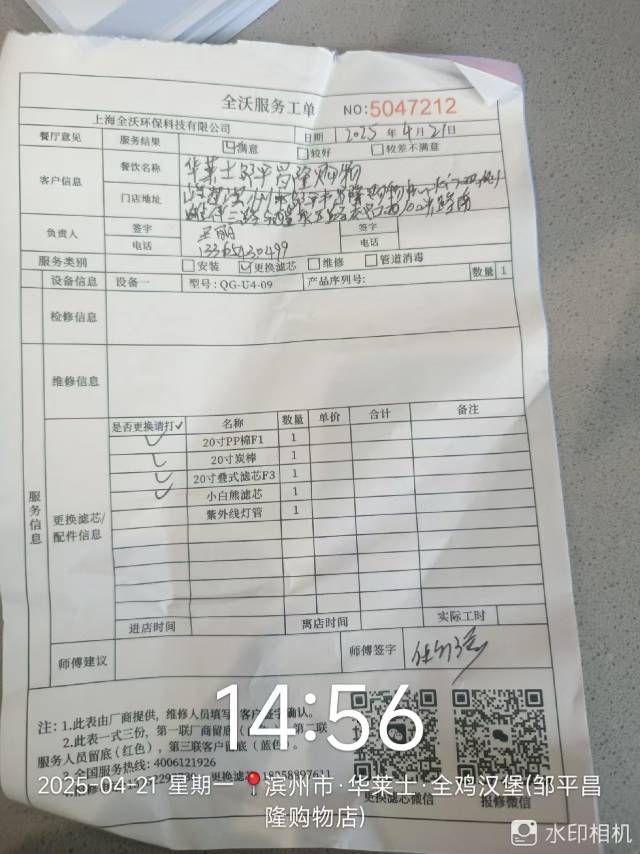 全沃服务工单 NO:5047212
上海全沃环保科技有限公司 日期 2025 年 4 月 21 日
餐厅意见 服务结果 ☑满意 □较好 □较差不满意
客户信息 餐饮名称 华莱士邹平昌隆购物
门店地址
负责人 签字 王丽 签字
电话 电话
服务类别 □安装 ☑更换滤芯 □维修 □管道消毒
设备信息 设备一 型号:QG-U4-09 产品序列号: 数量 1
检修信息
维修信息
服务信息
更换滤芯/配件信息
是否更换请打✓ 名称 数量 单价 合计 备注
✓ 20寸PP棉F1 1
✓ 20寸炭棒 1
✓ 20寸叠式滤芯F3 1
✓ 小白熊滤芯 1
紫外线灯管 1
进店时间 离店时间 实际工时
师傅建议 师傅签字
注:1.此表由厂商提供,维修人员填写 客户签字确认。
2.此表一式三份,第一联厂商留底 第二联
服务人员留底(红色),第三联客户留底(蓝色)。
全国服务热线:4006121926
更换滤芯 18058897611
更换滤芯微信 报修微信
14:56
2025-04-21 星期一 滨州市·华莱士·全鸡汉堡(邹平昌
隆购物店)
水印相机